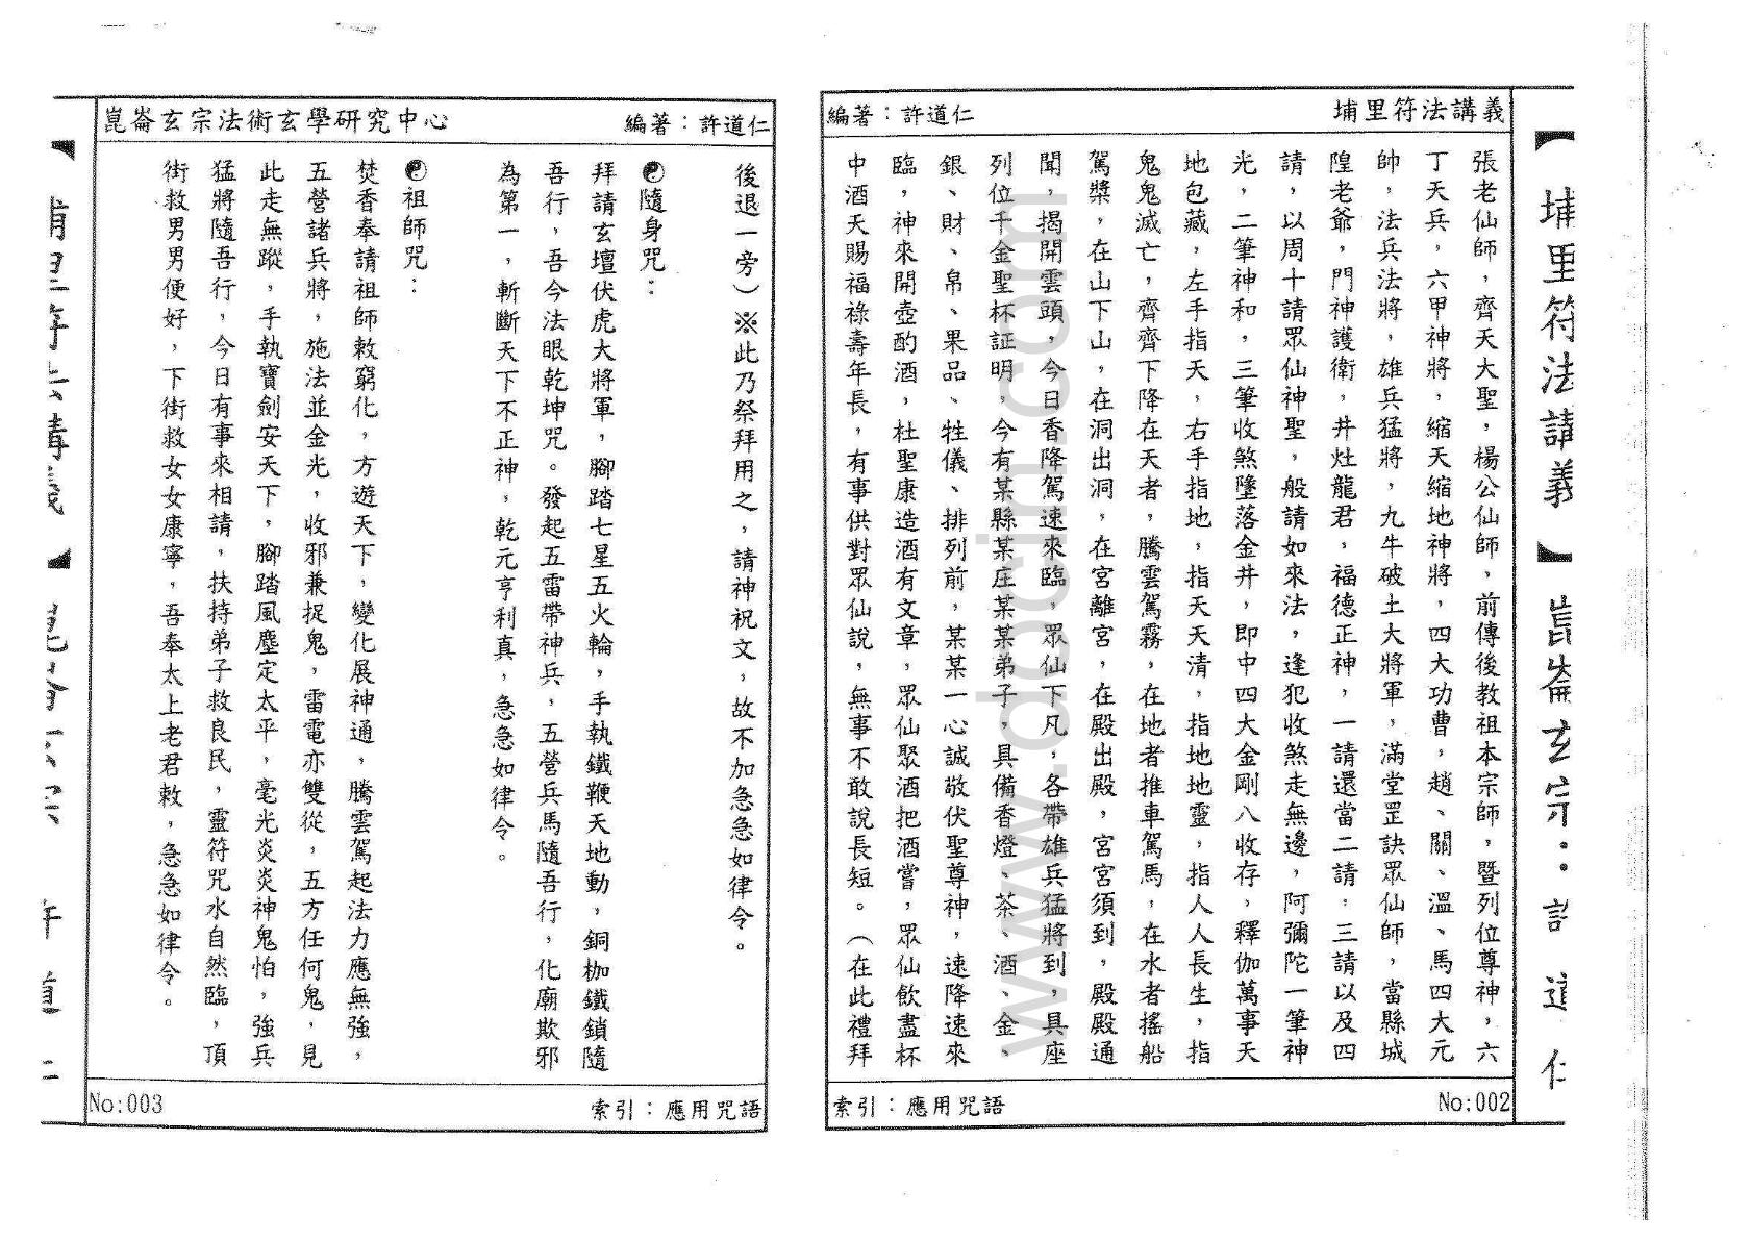 【埔里符法講義】崑崙玄宗：許道仁
埔里符法講義
編著：許道仁
張老仙師，齊天大聖，楊公仙師，前傳後教祖本宗師，暨列位尊神，六
丁天兵，六甲神將，縮天縮地神將，四大功曹，趙、關、溫、馬四大元
帥，法兵法將，雄兵猛將，九牛破土大將軍，滿堂罡訣眾仙師，當縣城
隍老爺，門神護衛，井灶龍君，福德正神，一請還當二請：三請以及四
請，以周十請眾仙神聖，般請如來法，逢犯收煞走無邊，阿彌陀一筆神
光，二筆神和，三筆收煞墜落金井，即中四大金剛八收存，釋伽萬事天
地包藏，左手指天，右手指地，指天天清，指地地靈，指人人長生，指
鬼鬼滅亡，齊齊下降在天者，騰雲駕霧，在地者推車駕馬，在水者搖船
駕槳，在山下山，在洞出洞，在宮離宮，在殿出殿，宮宮須到，殿殿通
聞，揭開雲頭，今日香降駕速來臨，眾仙下凡，各帶雄兵猛將到，具座
列位千金聖杯証明，今有某縣某庄某某弟子，具備香燈、茶、酒、金、
銀、財、帛、果品、牲儀、排列前，某某一心誠敬伏聖尊神，速降速來
臨，神來開壺酌酒，杜聖康造酒有文章，眾仙聚酒把酒嘗，眾仙飲盡杯
中酒天賜福祿壽年長，有事供對眾仙說，無事不敢說長短。（在此禮拜
No:002
索引：應用咒語
編著：許道仁
崑崙玄宗法術玄學研究中心
後退一旁）※此乃祭拜用之，請神祝文，故不加急急如律令。
隨身咒：
拜請玄壇伏虎大將軍，腳踏七星五火輪，手執鐵鞭天地動，銅枷鐵鎖隨
吾行，吾今法眼乾坤咒。發起五雷帶神兵，五營兵馬隨吾行，化廟欺邪
為第一，斬斷天下不正神，乾元亨利真，急急如律令。
祖師咒：
焚香奉請祖師敕窮化，方遊天下，變化展神通，騰雲駕起法力應無強，
五營諸兵將，施法並金光，收邪兼捉鬼，雷電亦雙從，五方任何鬼，見
此走無蹤，手執寶劍安天下，腳踏風塵定太平，毫光炎炎神鬼怕，強兵
猛將隨吾行，今日有事來相請，扶持弟子救良民，靈符咒水自然臨，頂
街救男男便好，下街救女女康寧，吾奉太上老君敕，急急如律令。
索引：應用咒語
No:003
www.docin.com